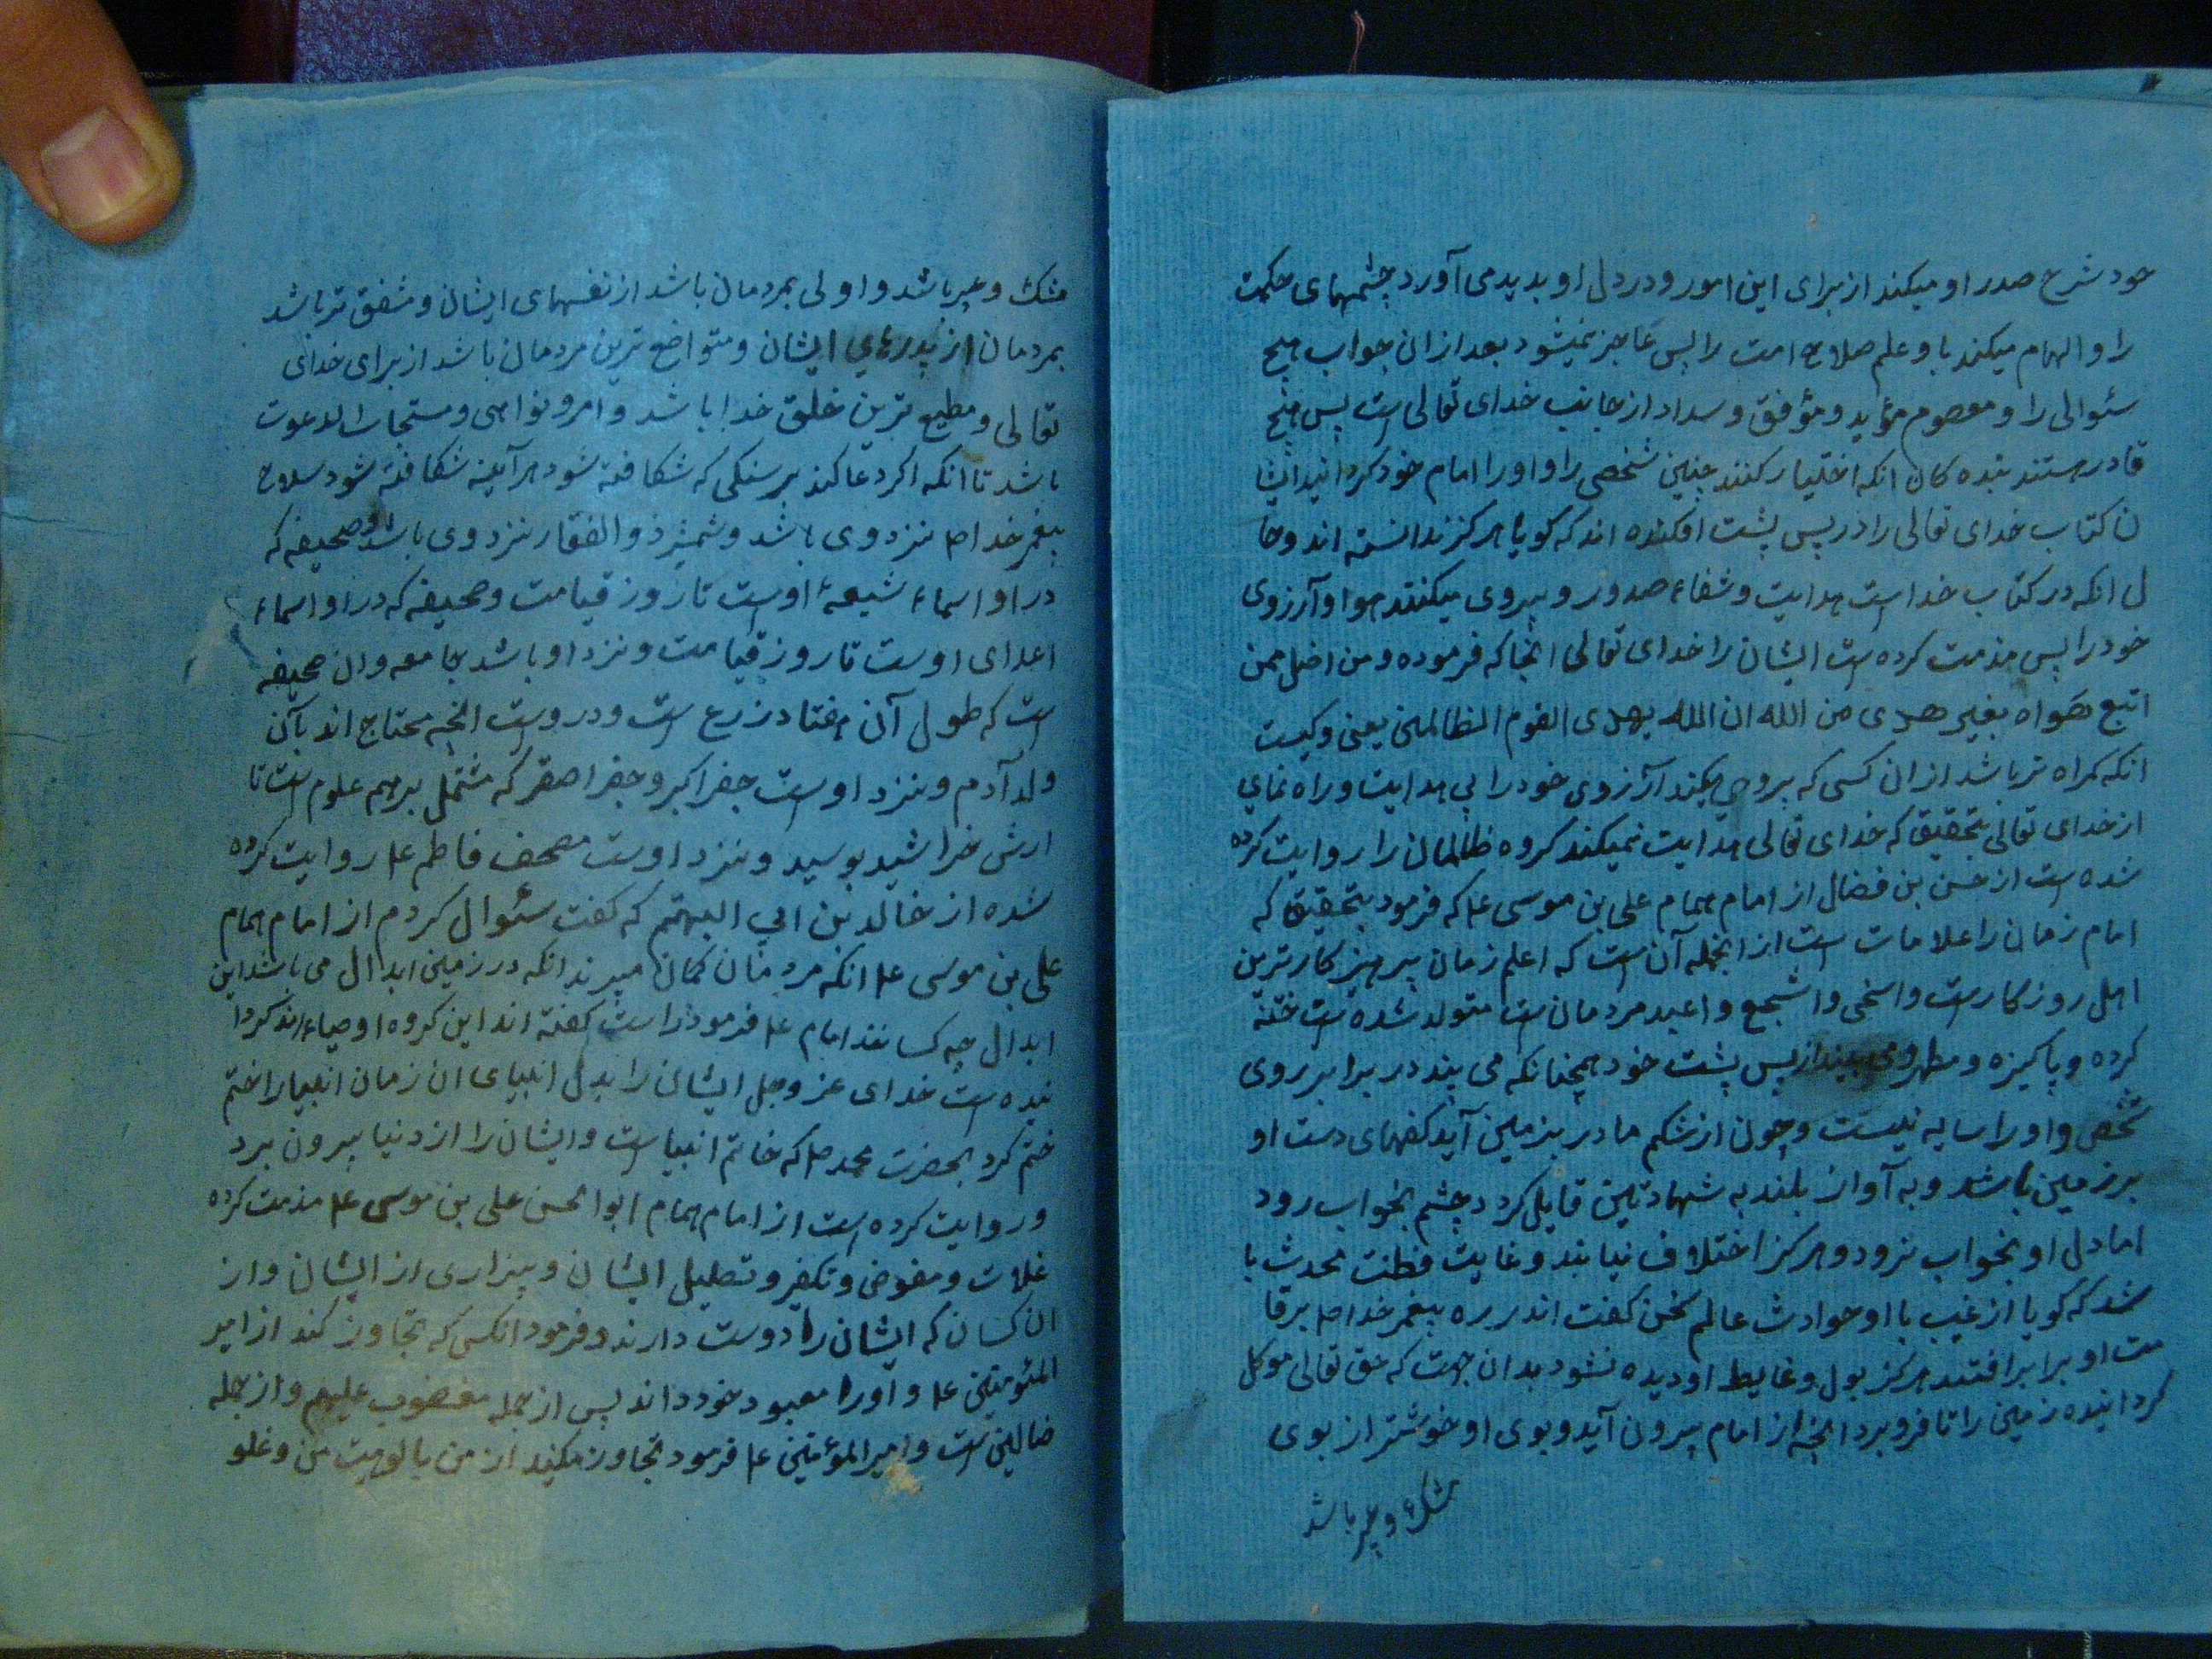 خود شرح صدر او میکند از برای این امور و در دل او بدید می آورد چشمهای حکمت
را و الهام میکند باو علم صلاح امت را پس عاجز نمیشود بعد ازان جواب هیچ
سئوالی را و معصوم مؤید و مؤفق و سداد از جانب خدای تعالی است پس هیچ
قادر هستند بنده کان انکه اختیار کنند چنین شخصی را و اورا امام خود کردانید ایشا
ن کتاب خدای تعالی را در پس پشت افکنده اند که کویا هرکز ندانسته اند و حا
ل انکه در کتاب خداست هدایت و شفاء صدور و پیروی میکنند هوا و آرزوی
خود را پس مذمت کرده است ایشان را خدای تعالی انجا که فرموده و من اضل ممن
اتبع هواه بغیر هدی من الله ان الله یهدی القوم الظالمین یعنی و کیست
انکه کمراه تر باشد از ان کسی که پیروی میکند آرزوی خود را بی هدایت و راه نمای
از خدای تعالی بتحقیق که خدای تعالی هدایت نمیکند کروه ظالمان را روایت کرده
شده است از حسن بن فضال از امام همام علی بن موسی ع که فرمود بتحقیق که
امام زمان را علامات است از انجمله آن است که اعلم زمان پرهیز کار ترین
اهل روزکارست و اسخی و اشجع و اعبد مردمان است متولد شده است ختنه
کرده و پاکیزه و مطهر و می بیند از پس پشت خود همچنانکه می بیند در برابر روی
شخص و اورا سایه نیست و چون از شکم مادر بزمین آید کفهای دست او
بر زمین باشد و به آواز بلند به شهادتین قایل کردد چشم بخواب رود
اما دل او بخواب نرود و هرکز اختلاف نیابد و غایت فطنت محدث با
شد که کویا از غیب با او حوادث عالم سخن کفت اند زره پیغمبر خدا ص بر قا
مت او برابر افتند هرکز بول و غایط او دیده نشود بدان جهت که حق تعالی موکل
کردانیده زمین را تا فرو برد انچه از امام بیرون آید و بوی او خوشتر از بوی
مشک و عبیر باشد
مشک و عبیر باشد و اولی بمردمان باشد از نفسهای ایشان و مشفق تر باشد
بمردمان از پدرهای ایشان و متواضع ترین مردمان باشد از برای خدای
تعالی و مطیع ترین خلق خدا باشد و امر و نواهی و مستجاب الدعوت
باشد تا انکه اکر دعا کند بر سنکی که شکافته شود هر آینه شکافته شود سلاح
پیغمبر خدا ص نزد وی باشد و شمشیر ذو الفقار نزد وی باشد و صحیفه که
در او اسماء شیعۀ اوست تا روز قیامت و صحیفه که در او اسماء
اعدای اوست تا روز قیامت و نزد او باشد جامعه و ان صحیفه
است که طول آن هفتاد زرع است و دروست انچه محتاج اند بآن
ولد آدم و نزد اوست جفر اکبر و جفر اصغر که مشتمل بر همه علوم است تا
ارش خراشید بوسید و نزد اوست مصحف فاطمه ع روایت کرده
شده از خالد بن ابی الهیثم که کفت سئوال کردم از امام همام
علی بن موسی ع انکه مردمان کمان میبرند انکه در زمین ابدال می باشد این
ابدال چه کسانند امام ع فرمود راست کفته اند این کروه اوصیاء اند کردا
نیده است خدای عز وجل ایشان را بدل انبیای ان زمان انبیا را ختم
ختم کرد بحضرت محمد ص که خاتم انبیا است و ایشان را از دنیا بیرون برد
و روایت کرده است از امام همام ابو الحسن علی بن موسی ع مذمت کرده
غلات و مفوض و تکفیر و تضلیل ایشان و بیزاری از ایشان و از
ان کسان که ایشان را دوست دارند و فرمود انکسی که تجاوز کند از امیر
المئومنین ع و اورا معبود خود داند پس از جمله مغضوب علیهم و از جمله
ضالین است و امیر المؤمنین ع فرمود تجاوز مکنید از من بالوهیت من و غلو